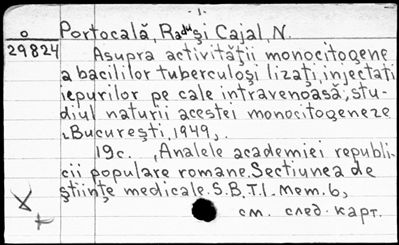 - 1 -
o Portocală, Radu și Cajal, N.
29824 Asupra activității monocitogene
a bacililor tuberculoși lizați, injectați
iepurilor pe cale intravenoasă, stu-
diul naturii acestei monocitogeneze
București, 1949,.
19c. , Analele academiei republi-
cii populare romane. Sectiunea de
științe medicale. S.B.T.I. Mem. 6,
см. след. карт.